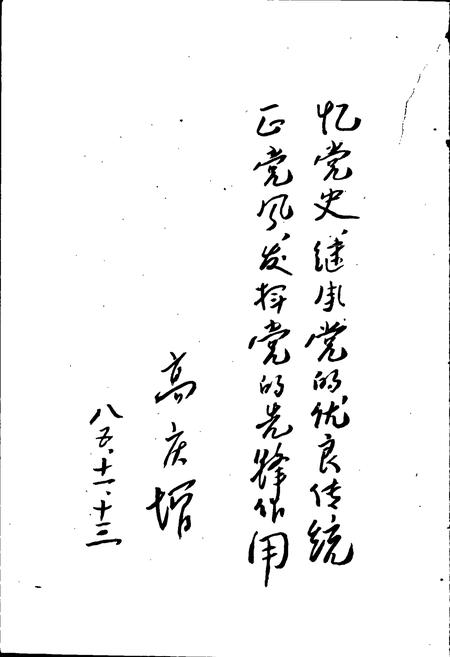 忆党史、继承党的优良传统
正党风、发挥党的先锋作用
高庆增
八五、十一、十三